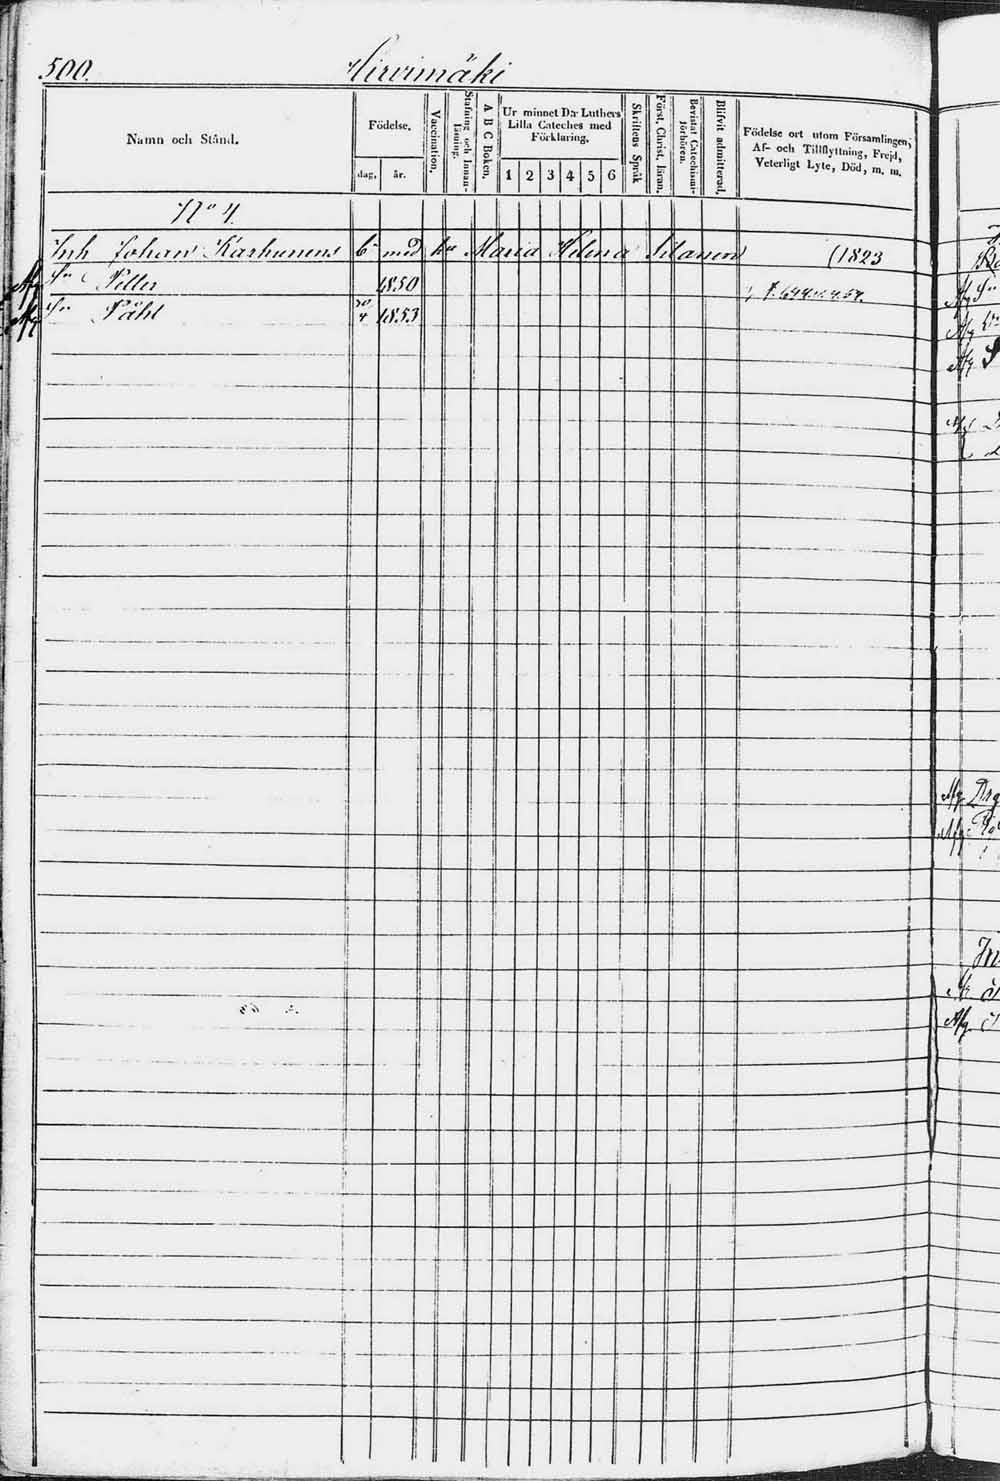 500. Hirvimäki
Namn och Stånd.
Födelse.
dag. år.
Vaccination.
Stafning och Innanläsning.
A B C Boken.
Ur minnet D:r Luthers
Lilla Cateches med
Förklaring.
1 2 3 4 5 6
Skriftens Språk
Först. Christ. läran.
Bevistat Catechismiförhören.
Blifvit admitterad.
Födelse ort utom Församlingen,
Af- och Tillflyttning, Frejd,
Veterligt Lyte, Död, m. m.
No 4.
Inh Johan Karhunens med hu Maria Helena (1823
Sn Petter 1850
Sn Påhl 30/4 1853